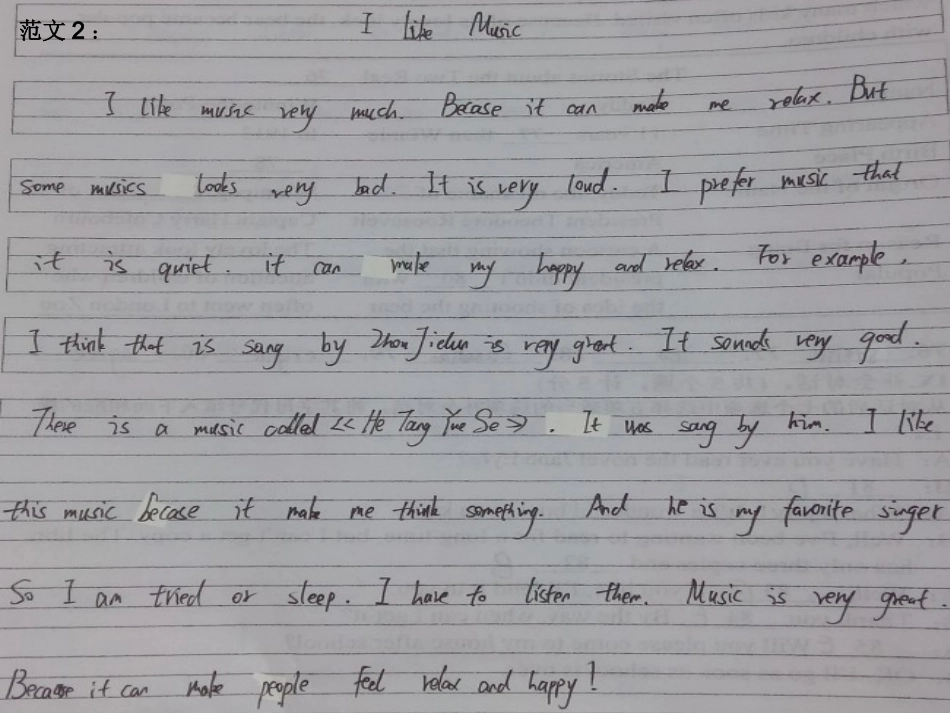 范文2：
I like Music
I like music very much. Becase it can make me relax. But
some musics looks very bad. It is very loud. I prefer music that
it is quiet. it can make my happy and relax. For example,
I think that is sang by Zhou Jielun is very great. It sounds very good.
There is a music called << He Tang Yue Se >>. It was sang by him. I like
this music becase it make me think something. And he is my favorite singer
So I am tried or sleep. I have to listen them. Music is very great.
Because it can make people feel relax and happy!